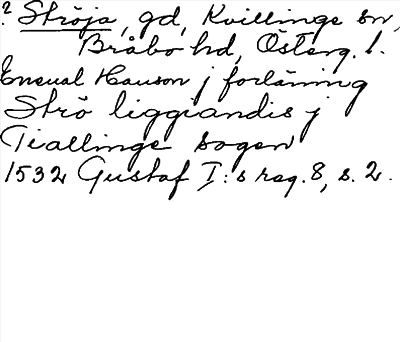 ? Ströja, gd, Kvillinge sn,
Bråbo hd, Österg. l.
Eneual Hanson j forläning
Strö liggiandis j
Tiallinge sogen
1532 Gustaf I:s reg. 8, s. 2.